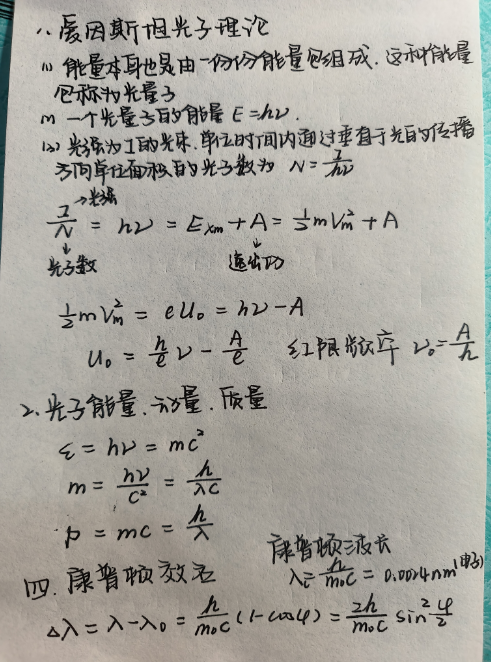 1、爱因斯坦光子理论
(1) 能量本身也是由一份份能量包组成,这种能量
包称为光量子
(2) 一个光量子的能量 E=hν.
(3) 光强为I的光束,单位时间内通过垂直于光的传播
方向单位面积的光子数为 N=I/hν
→光强
I/N = hν = Exm + A = 1/2 mVm² + A
光子数 逸出功
1/2 mVm² = eU₀ = hν - A
U₀ = h/e ν - A/e 红限频率 ν₀ = A/h
2、光子能量、动量、质量
ε = hν = mc²
m = hν/c² = h/λc
p = mc = h/λ
康普顿波长
λc = h/m₀c = 0.0024nm (电子)
四、康普顿效应
Δλ = λ-λ₀ = h/m₀c (1-cosφ) = 2h/m₀c sin² φ/2